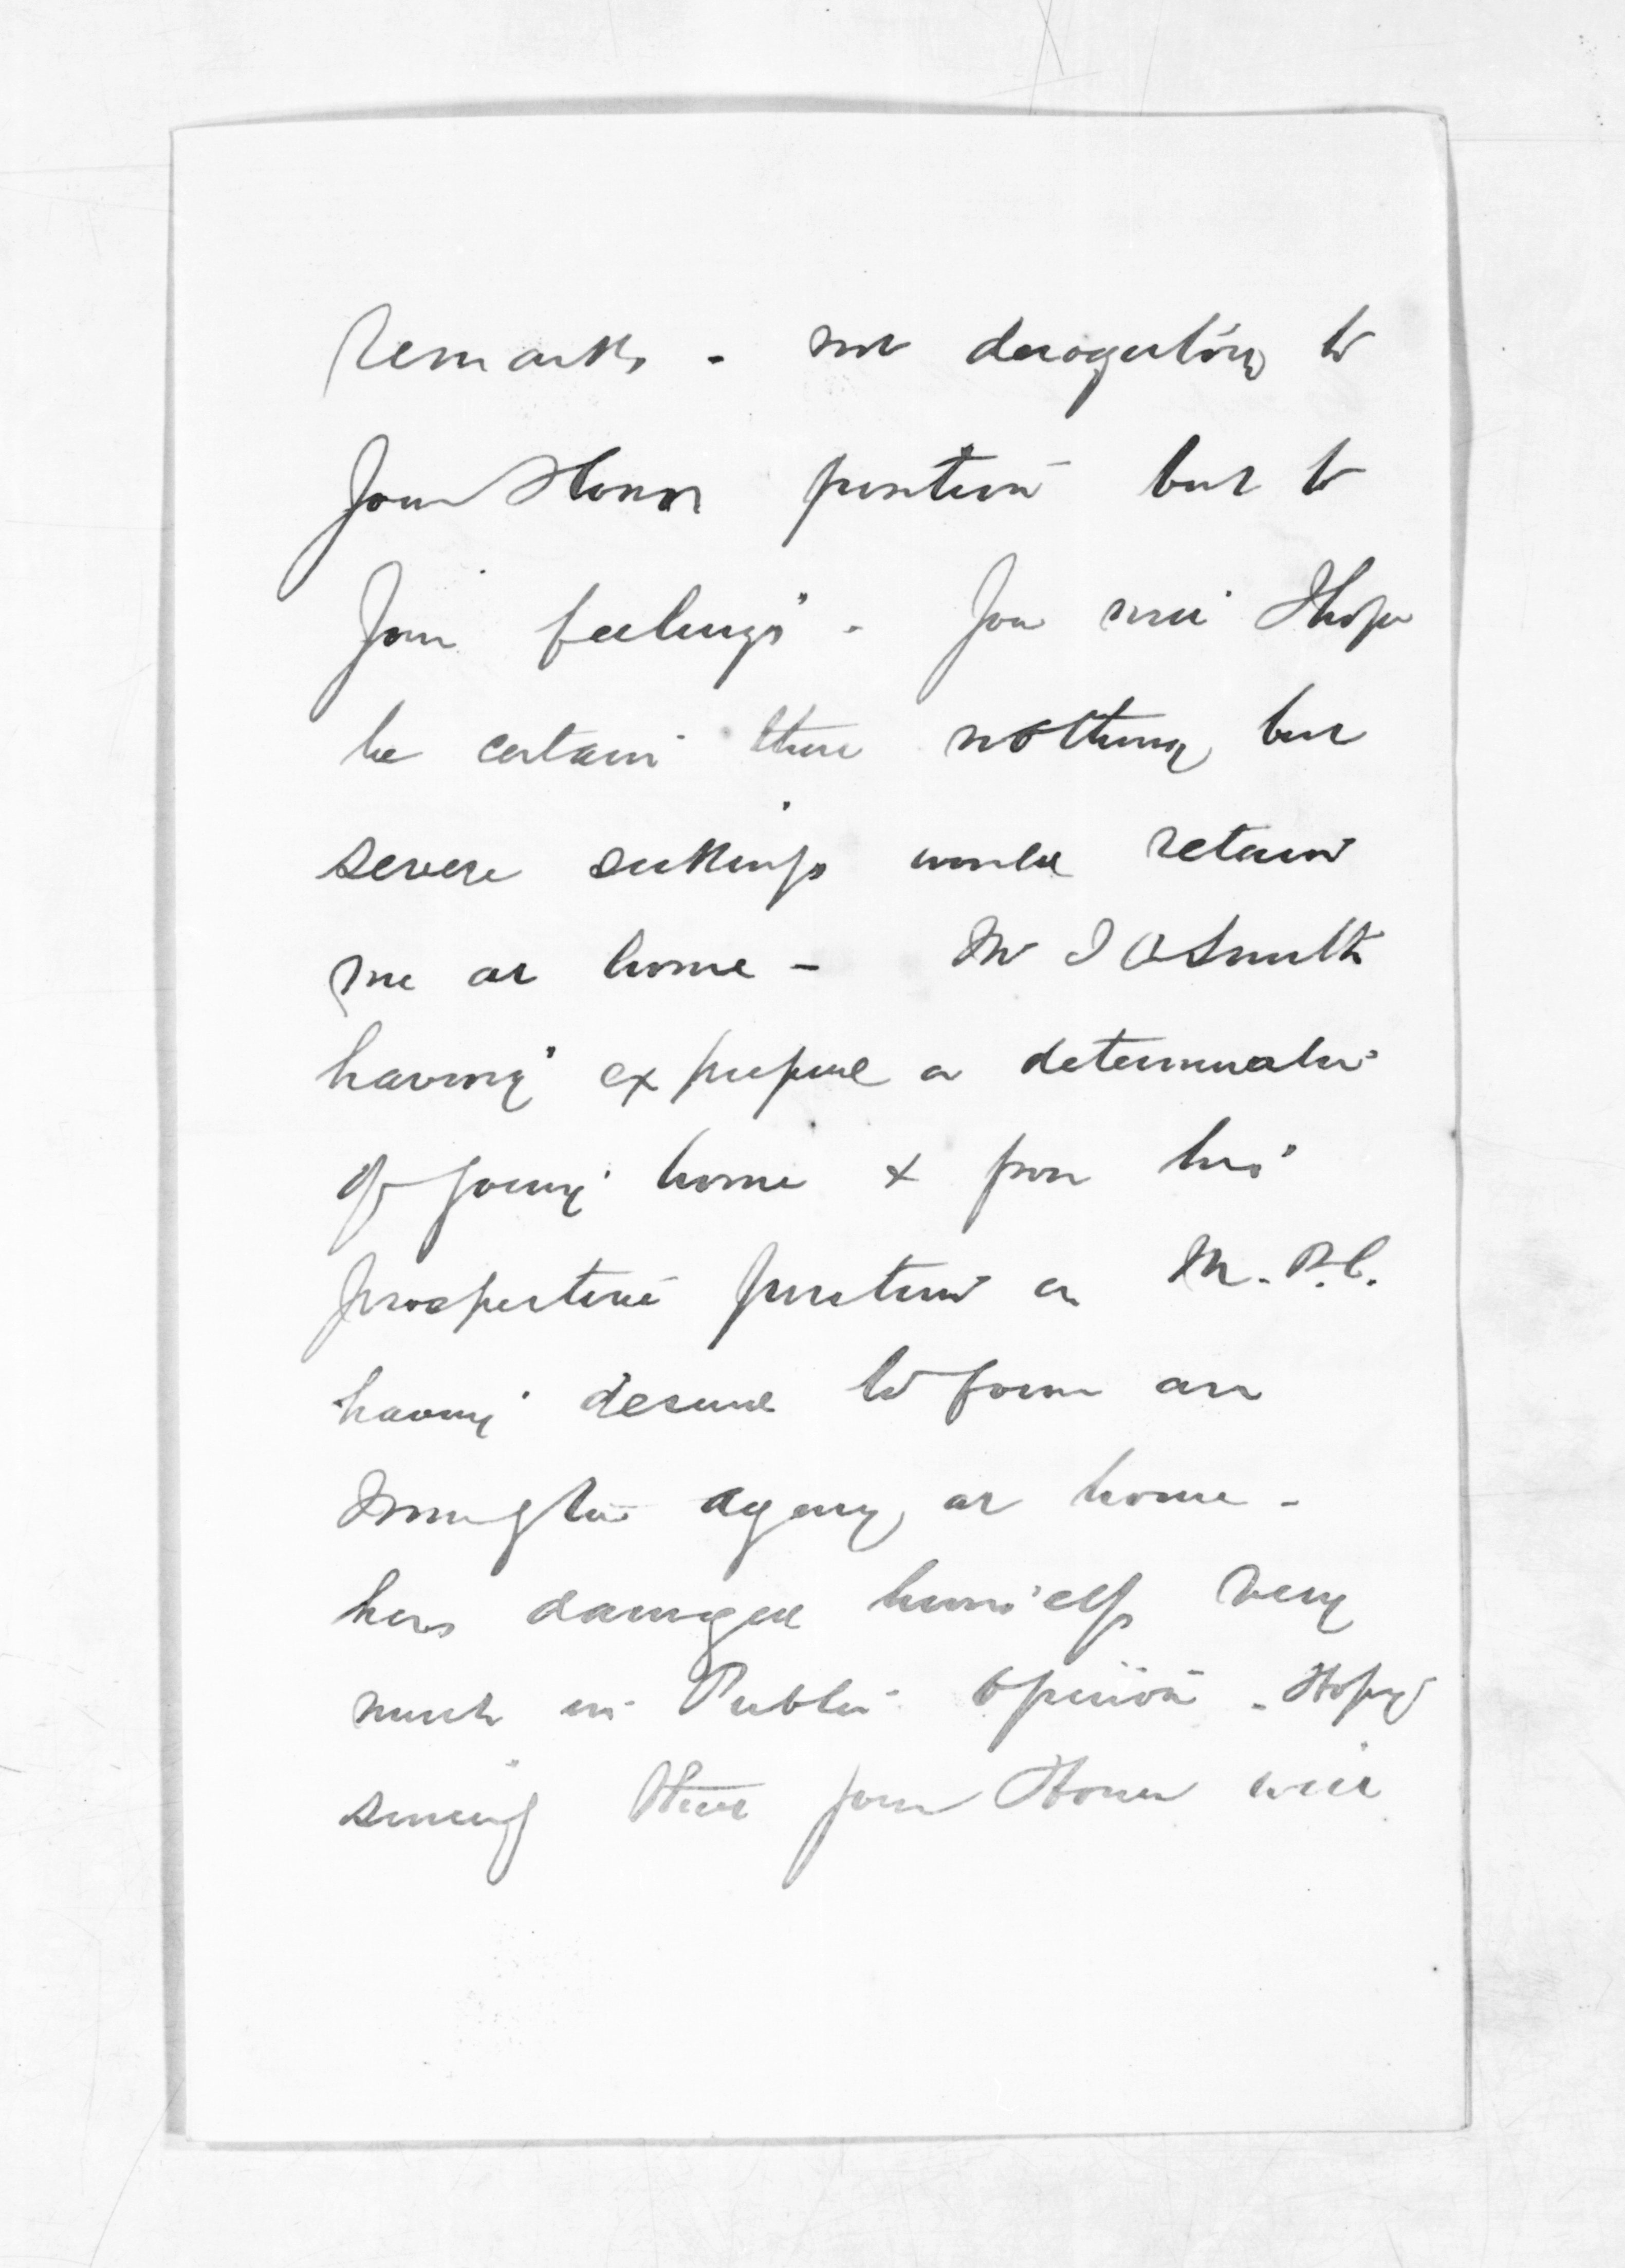 remarks - not derogatory to
Your Honor position but to
your feelings - You may I hope
be certain that nothing but
severe sickness would retain
me at home - Mr J A Smith
having expressed a determination
of going home & from his
prospective position as M.P.C.
having desired to form an
Immigration agency at home -
has damaged himself very
much in Public opinion - Hoping
sincerely that your Honor will